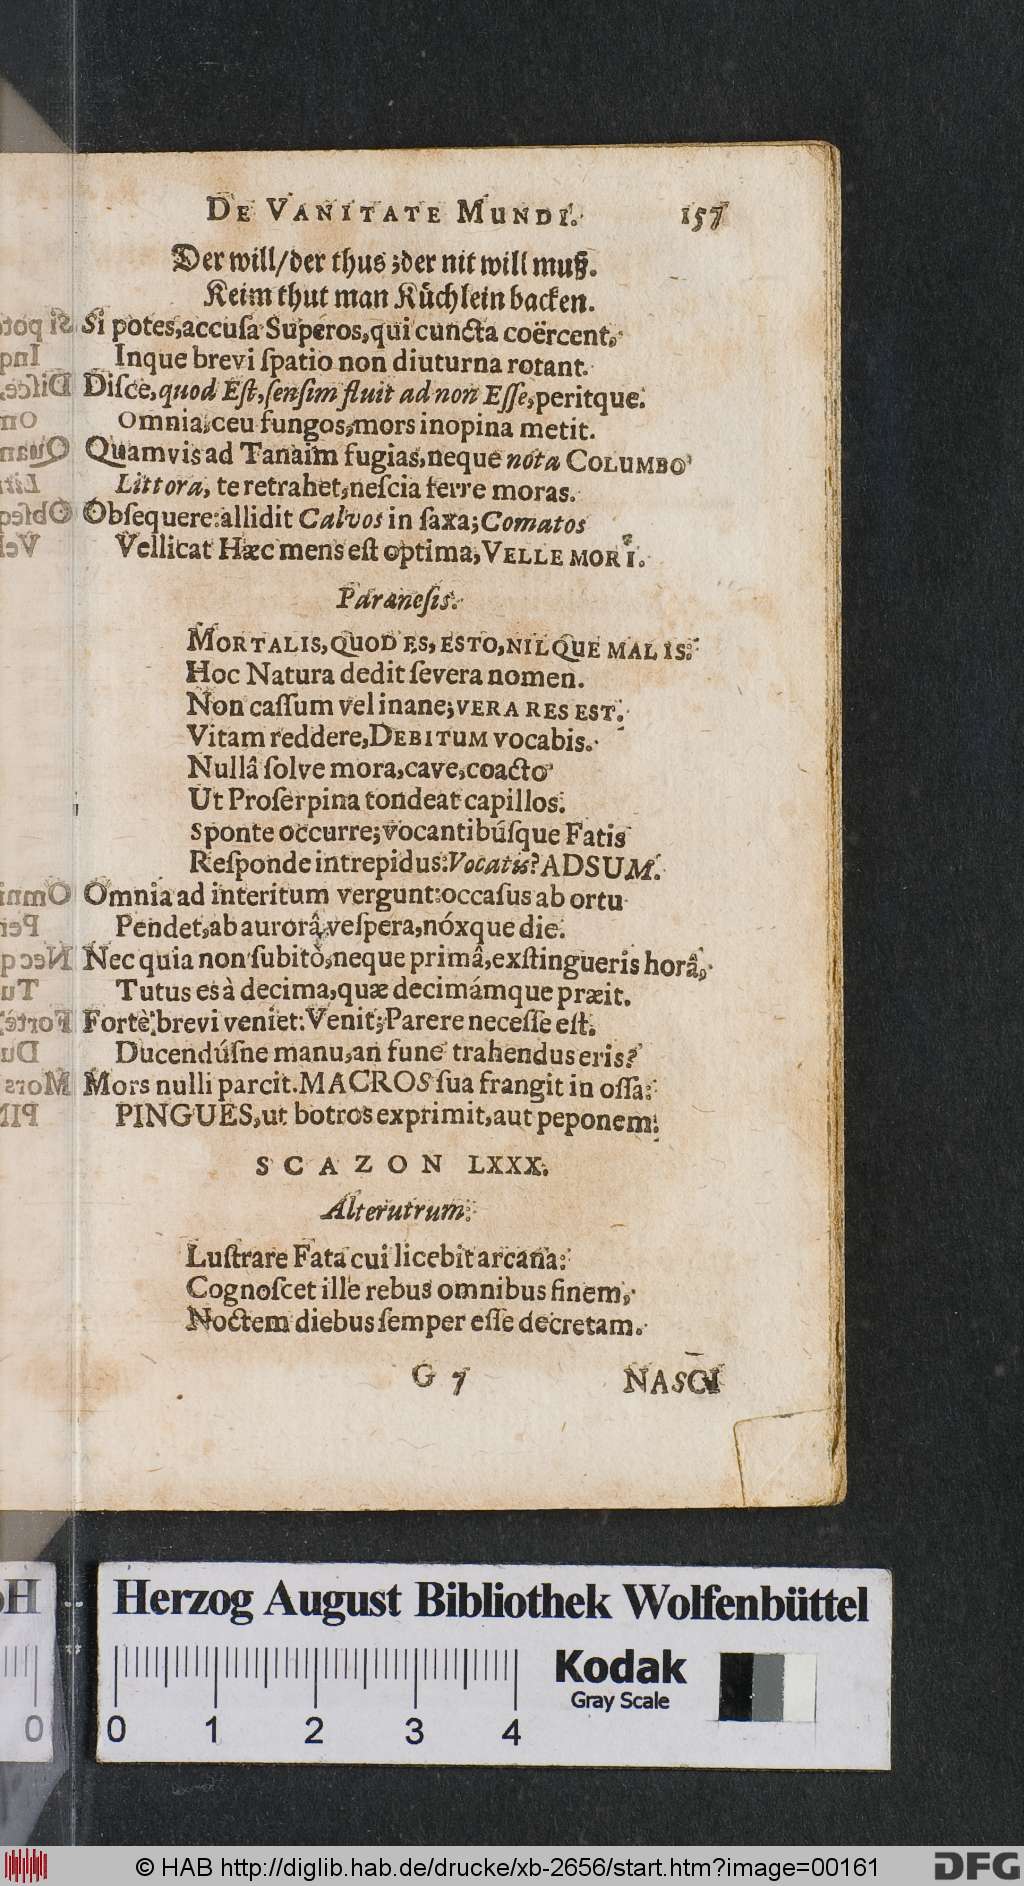 DE VANITATE MUNDI. 157
Der will/der thus ; der nit will muß.
Keim thut man Küchlein backen.
Si potes, accuſa Superos, qui cuncta coërcent,
Inque brevi ſpatio non diuturna rotant.
Diſce, quod Eſt, ſenſim fluit ad non Eſſe, peritque.
Omnia, ceu fungos, mors inopina metit.
Quamvis ad Tanaim fugias, neque nota COLUMBO
Littora, te retrahet, neſcia ferre moras.
Obſequere: allidit Calvos in ſaxa; Comatos
Vellicat Hæc mens eſt optima, VELLE MORI.
Paræneſis.
MORTALIS, QUOD ES, ESTO, NILQUE MALIS:
Hoc Natura dedit ſevera nomen.
Non caſſum vel inane; VERA RES EST.
Vitam reddere, DEBITUM vocabis.
Nullâ ſolve mora, cave, coacto
Ut Proſerpina tondeat capillos.
Sponte occurre; vocantibúſque Fatis
Reſponde intrepidus: Vocatis? ADSUM.
Omnia ad interitum vergunt: occaſus ab ortu
Pendet, ab aurorâ veſpera, nóxque die.
Nec quia non ſubitò, neque primâ, exſtingueris horâ,
Tutus es à decima, quæ decimámque præit.
Fortè brevi veniet: Venit; Parere neceſſe eſt.
Ducendúſne manu, an fune trahendus eris?
Mors nulli parcit. MACROS ſua frangit in oſſa:
PINGUES, ut botros exprimit, aut peponem.
SCAZON LXXX.
Alterutrum.
Luſtrare Fata cui licebit arcana:
Cognoſcet ille rebus omnibus finem,
Noctem diebus ſemper eſſe decretam.
G 7 NASCI
Herzog August Bibliothek Wolfenbüttel
Kodak
Gray Scale
0 0 1 2 3 4
© HAB http://diglib.hab.de/drucke/xb-2656/start.htm?image=00161
DFG